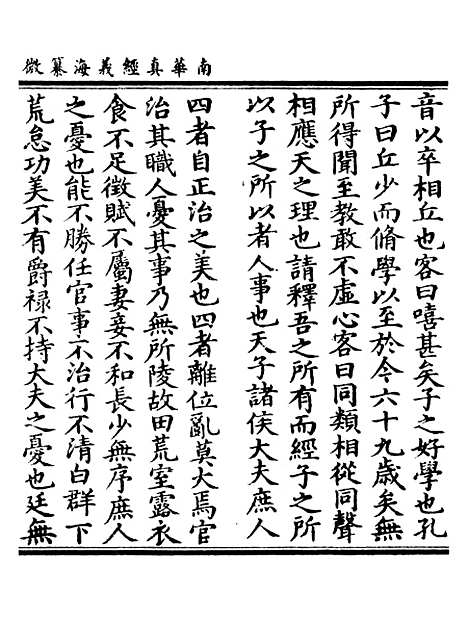 南華真經義海纂微
音以卒相丘也客曰嘻甚矣子之好學也孔
子曰丘少而脩學以至於今六十九歲矣無
所得聞至教敢不虛心客曰同類相從同聲
相應天之理也請釋吾之所有而經子之所
以子之所以者人事也天子諸侯大夫庶人
四者自正治之美也四者離位亂莫大焉官
治其職人憂其事乃無所陵故田荒室露衣
食不足徵賦不屬妻妾不和長少無序庶人
之憂也能不勝任官事不治行不清白群下
荒怠功美不有爵祿不持大夫之憂也廷無